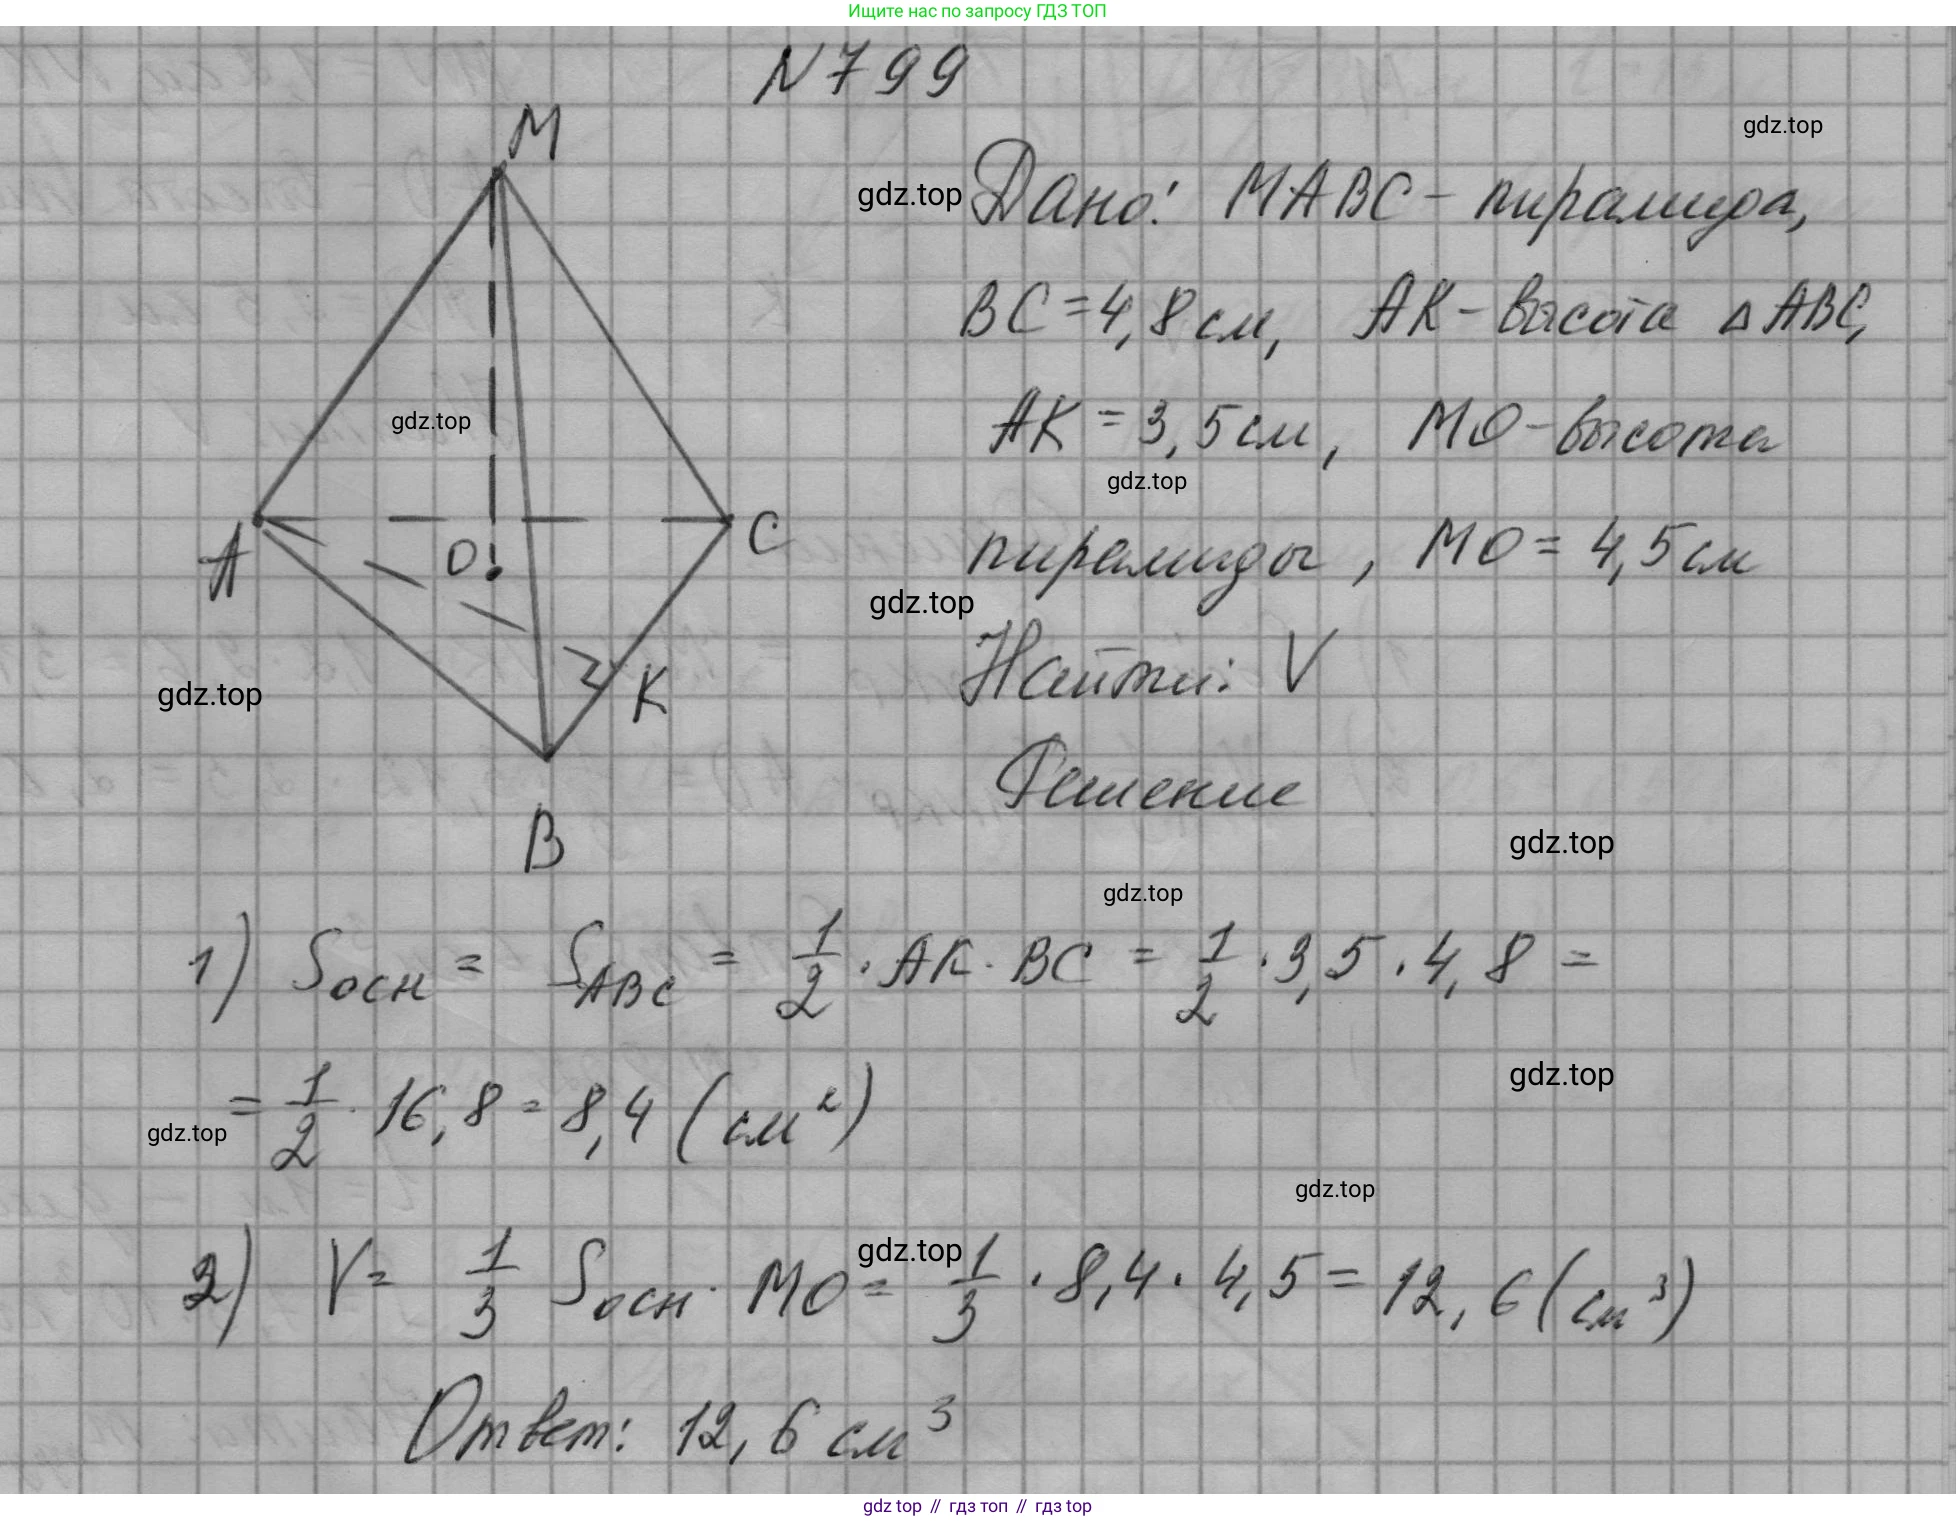 Ищите нас по запросу ГДЗ ТОП
N 799
M
gdz.top
gdz.top Дано: MABC - пирамида,
BC = 4,8 см, AK - высота △ ABC,
gdz.top
AK = 3,5 см, MO - высота
gdz.top
A O C
пирамиды, MO = 4,5 см
gdz.top
gdz.top
K
Найти: V
Решение
B
gdz.top
gdz.top
1) Sосн = SABC = 1/2 · AK · BC = 1/2 · 3,5 · 4,8 =
gdz.top
= 1/2 · 16,8 = 8,4 (см²)
gdz.top
gdz.top
gdz.top
2) V = 1/3 Sосн · MO = 1/3 · 8,4 · 4,5 = 12,6 (см³)
Ответ: 12,6 см³
gdz top // гдз топ // гдз top